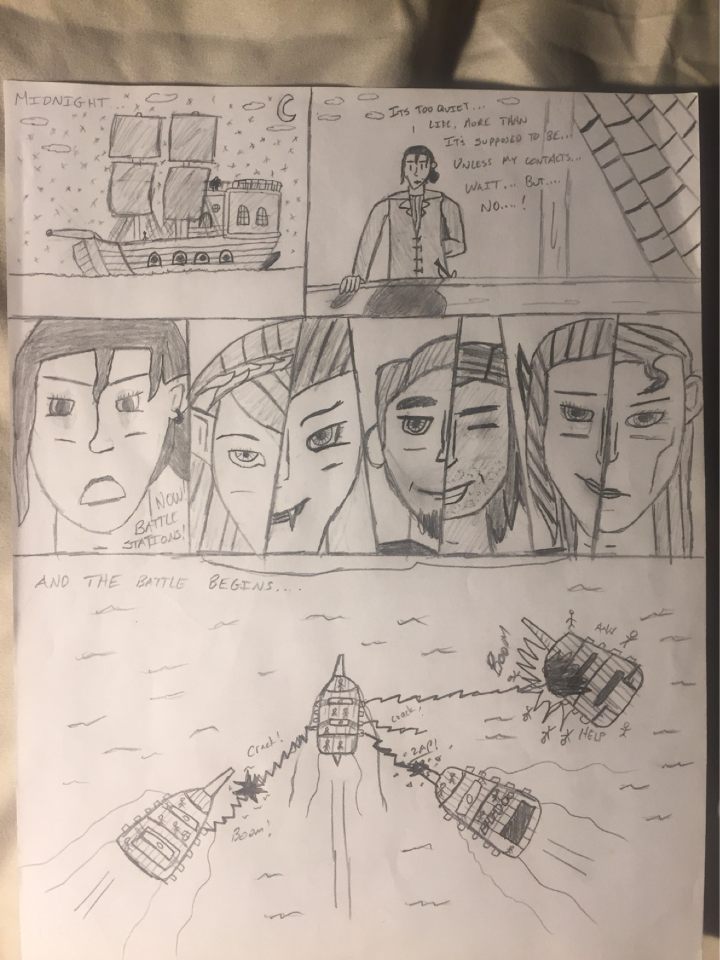 MIDNIGHT...
ITS TOO QUIET...
I LIKE, MORE THAN
IT'S SUPPOSED TO BE...
UNLESS MY CONTACTS...
WAIT... BUT....
NO....!
NOW!
BATTLE
STATIONS!
AND THE BATTLE BEGINS....
BOOM
Crack!
Crack!
ZAP!
HELP
BOOM!